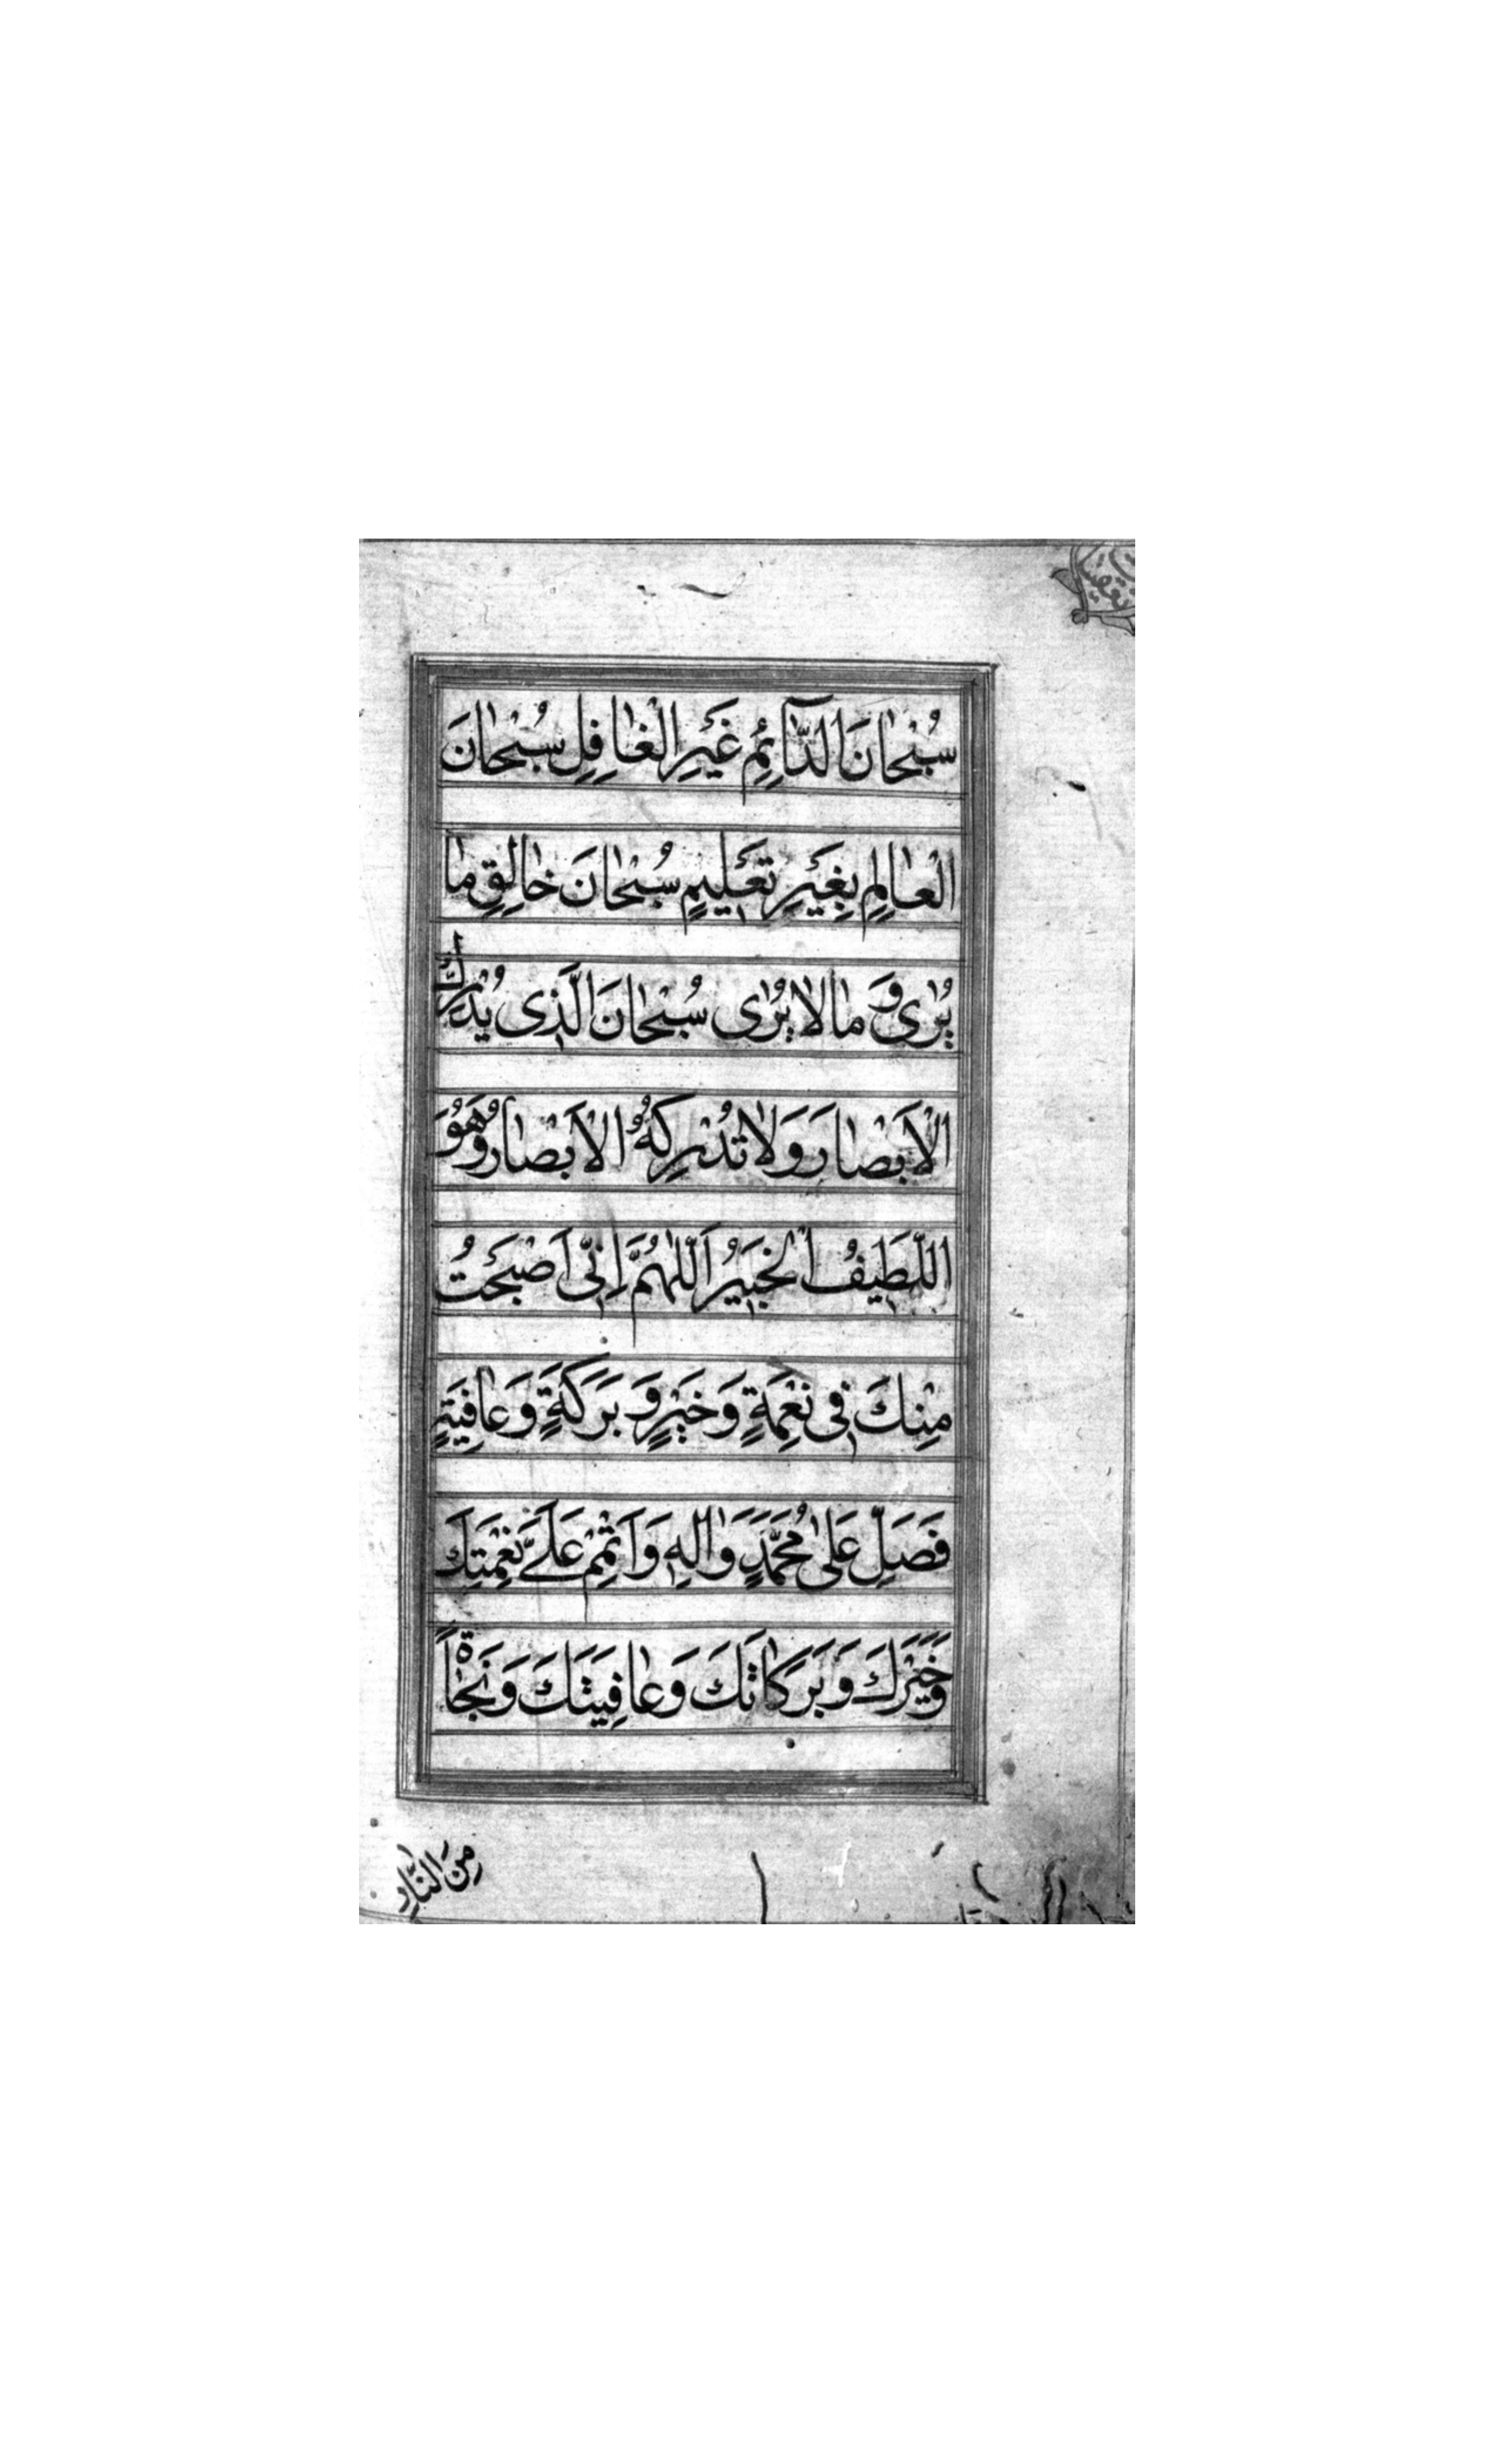 سُبْحانَ الدّآئِمِ غَيْرِ الْغافِلِ سُبْحانَ
الْعالِمِ بِغَيْرِ تَعْليمٍ سُبْحانَ خالِقِ ما
يُرٰى وَ ما لا يُرٰى سُبْحانَ الَّذى يُدْرِكُ
الْاَبْصارَ وَلا تُدْرِكُهُ الْاَبْصارُ وَهُوَ
اللَّطيفُ الْخَبيرُ اَللّٰهُمَّ اِنّى اَصْبَحْتُ
مِنْكَ فى نِعْمَةٍ وَخَيْرٍ وَ بَرَكَةٍ وَ عافِيَةٍ
فَصَلِّ عَلٰى مُحَمَّدٍ وَاٰلِهِ وَ اَتْمِمْ عَلَىَّ نِعْمَتَكَ
وَخَيْرَكَ وَ بَرَكاتَكَ وَ عافِيَتَكَ وَ نَجاةً
مِنَ النّارِ